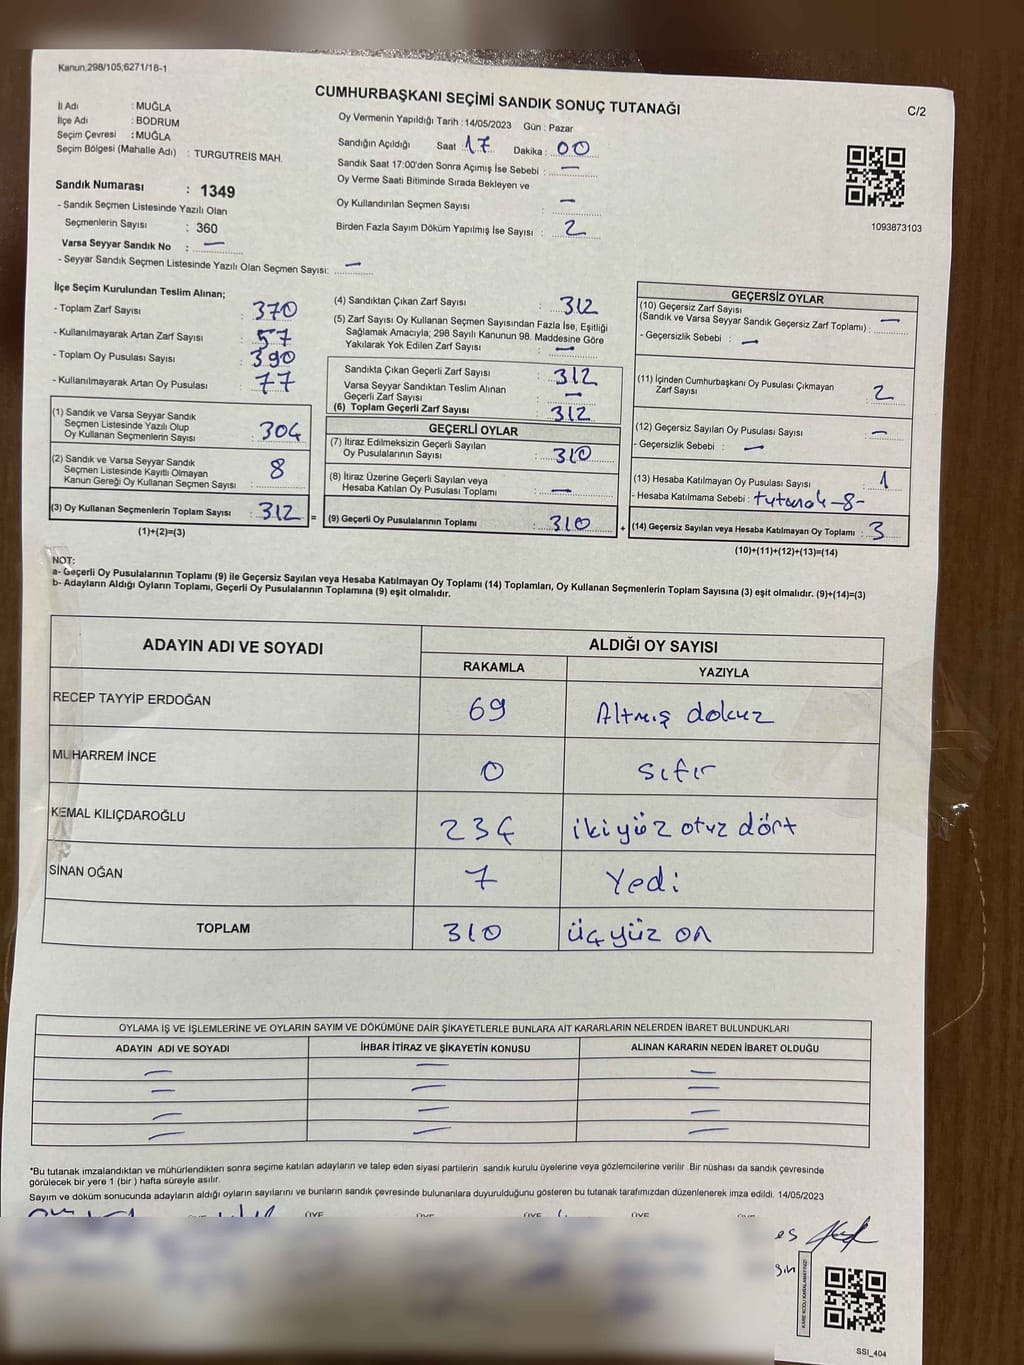 Kanun,298/105,6271/18-1
CUMHURBAŞKANI SEÇİMİ SANDIK SONUÇ TUTANAĞI
C/2
İl Adı : MUĞLA
İlçe Adı : BODRUM
Seçim Çevresi : MUĞLA
Seçim Bölgesi (Mahalle Adı) : TURGUTREİS MAH.
Sandık Numarası : 1349
- Sandık Seçmen Listesinde Yazılı Olan
Seçmenlerin Sayısı : 360
Varsa Seyyar Sandık No : —
- Seyyar Sandık Seçmen Listesinde Yazılı Olan Seçmen Sayısı: —
Oy Vermenin Yapıldığı Tarih : 14/05/2023 Gün : Pazar
Sandığın Açıldığı Saat : 17 Dakika : 00
Sandık Saat 17:00'den Sonra Açımış İse Sebebi : —
Oy Verme Saati Bitiminde Sırada Bekleyen ve
Oy Kullandırılan Seçmen Sayısı : —
Birden Fazla Sayım Döküm Yapılmış İse Sayısı : 2
1093873103
İlçe Seçim Kurulundan Teslim Alınan;
- Toplam Zarf Sayısı : 370
- Kullanılmayarak Artan Zarf Sayısı : 57
- Toplam Oy Pusulası Sayısı : 390
- Kullanılmayarak Artan Oy Pusulası : 77
(1) Sandık ve Varsa Seyyar Sandık
Seçmen Listesinde Yazılı Olup
Oy Kullanan Seçmenlerin Sayısı : 304
(2) Sandık ve Varsa Seyyar Sandık
Seçmen Listesinde Kayıtlı Olmayan
Kanun Gereği Oy Kullanan Seçmen Sayısı : 8
(3) Oy Kullanan Seçmenlerin Toplam Sayısı : 312 =
(1)+(2)=(3)
(4) Sandıktan Çıkan Zarf Sayısı : 312
(5) Zarf Sayısı Oy Kullanan Seçmen Sayısından Fazla İse, Eşitliği
Sağlamak Amacıyla; 298 Sayılı Kanunun 98. Maddesine Göre
Yakılarak Yok Edilen Zarf Sayısı : —
Sandıkta Çıkan Geçerli Zarf Sayısı : 312
Varsa Seyyar Sandıktan Teslim Alınan
Geçerli Zarf Sayısı : —
(6) Toplam Geçerli Zarf Sayısı : 312
GEÇERLİ OYLAR
(7) İtiraz Edilmeksizin Geçerli Sayılan
Oy Pusulalarının Sayısı : 310
(8) İtiraz Üzerine Geçerli Sayılan veya
Hesaba Katılan Oy Pusulası Toplamı : —
(9) Geçerli Oy Pusulalarının Toplamı : 310 +
GEÇERSİZ OYLAR
(10) Geçersiz Zarf Sayısı
(Sandık ve Varsa Seyyar Sandık Geçersiz Zarf Toplamı) : —
- Geçersizlik Sebebi : —
(11) İçinden Cumhurbaşkanı Oy Pusulası Çıkmayan
Zarf Sayısı : 2
(12) Geçersiz Sayılan Oy Pusulası Sayısı : —
- Geçersizlik Sebebi : —
(13) Hesaba Katılmayan Oy Pusulası Sayısı : 1
- Hesaba Katılmama Sebebi : tutanak-8-
(14) Geçersiz Sayılan veya Hesaba Katılmayan Oy Toplamı : 3
(10)+(11)+(12)+(13)=(14)
NOT:
a- Geçerli Oy Pusulalarının Toplamı (9) ile Geçersiz Sayılan veya Hesaba Katılmayan Oy Toplamı (14) Toplamları, Oy Kullanan Seçmenlerin Toplam Sayısına (3) eşit olmalıdır. (9)+(14)=(3)
b- Adayların Aldığı Oyların Toplamı, Geçerli Oy Pusulalarının Toplamına (9) eşit olmalıdır.
ADAYIN ADI VE SOYADI ALDIĞI OY SAYISI
RAKAMLA YAZIYLA
RECEP TAYYİP ERDOĞAN 69 Altmış dokuz
MUHARREM İNCE 0 sıfır
KEMAL KILIÇDAROĞLU 234 ikiyüz otuz dört
SİNAN OĞAN 7 Yedi
TOPLAM 310 üçyüz on
OYLAMA İŞ VE İŞLEMLERİNE VE OYLARIN SAYIM VE DÖKÜMÜNE DAİR ŞİKAYETLERLE BUNLARA AİT KARARLARIN NELERDEN İBARET BULUNDUKLARI
ADAYIN ADI VE SOYADI İHBAR İTİRAZ VE ŞİKAYETİN KONUSU ALINAN KARARIN NEDEN İBARET OLDUĞU
— — —
— — —
— — —
— — —
*Bu tutanak imzalandıktan ve mühürlendikten sonra seçime katılan adayların ve talep eden siyasi partilerin sandık kurulu üyelerine veya gözlemcilerine verilir .Bir nüshası da sandık çevresinde
görülecek bir yere 1 (bir ) hafta süreyle asılır.
Sayım ve döküm sonucunda adayların aldığı oyların sayılarını ve bunların sandık çevresinde bulunanlara duyurulduğunu gösteren bu tutanak tarafımızdan düzenlenerek imza edildi. 14/05/2023
ÜYE ÜYE ÜYE ÜYE
KARE KODU KARALAMAYINIZ!
SSI_404